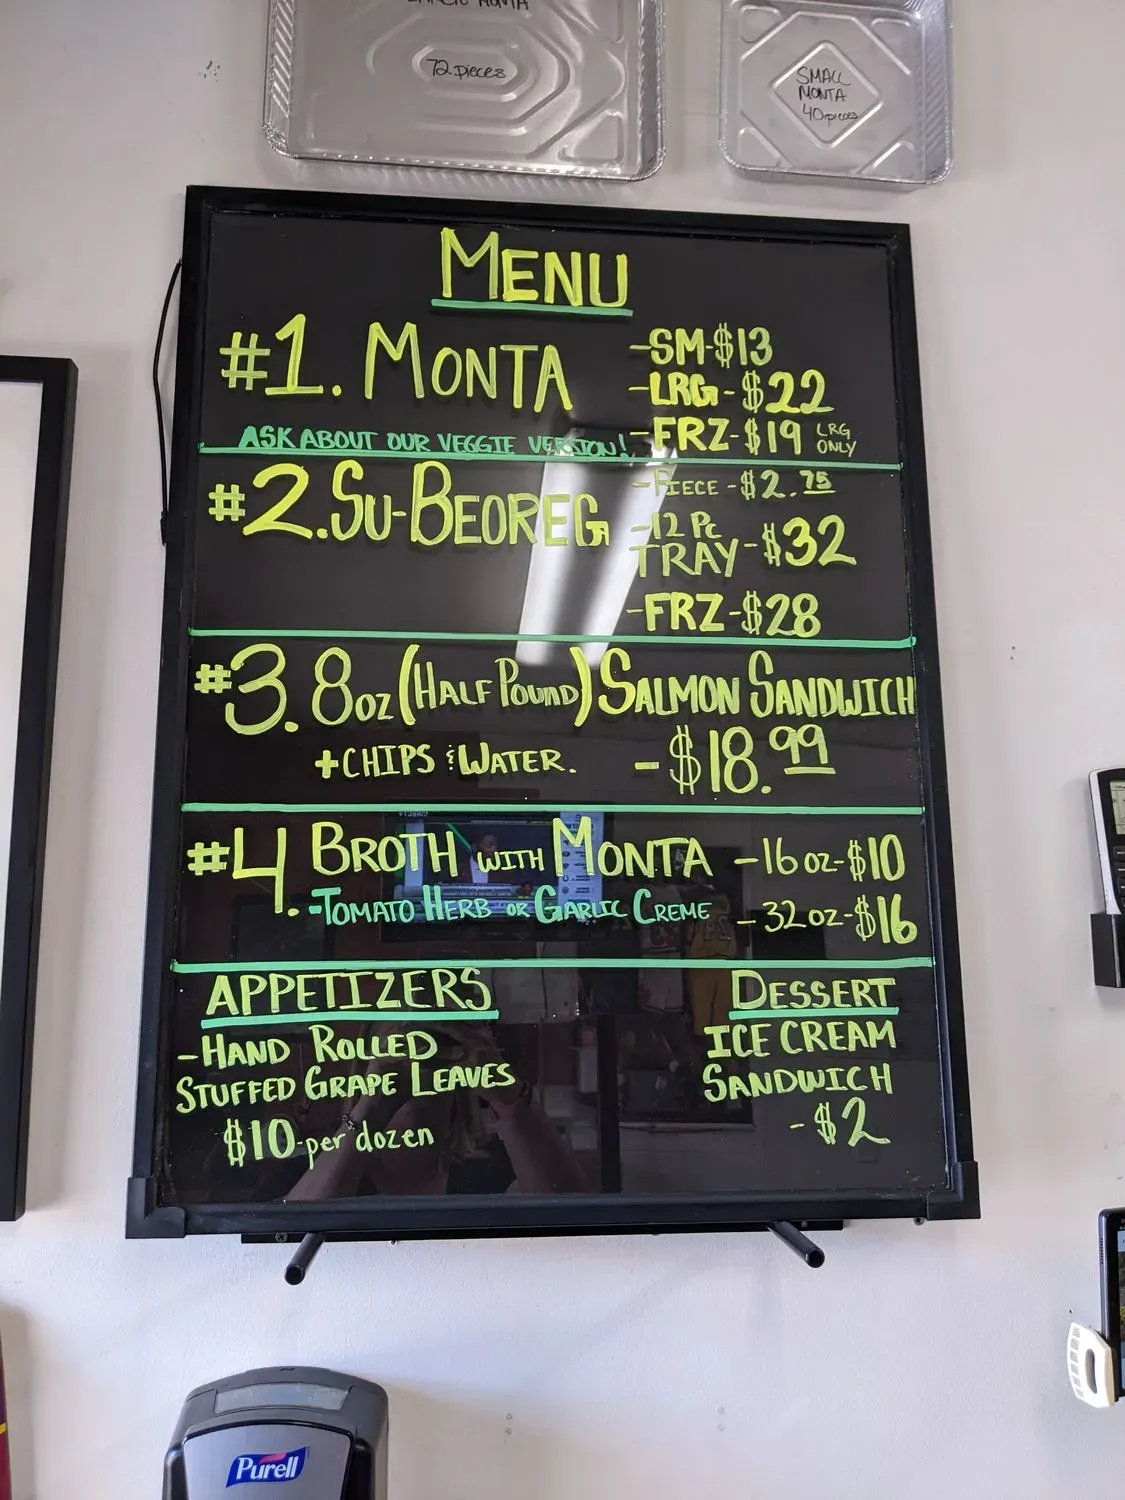 MONTA
72 pieces
SMALL
MONTA
40 pieces
MENU
#1. MONTA
-SM-$13
-LRG-$22
-FRZ-$19 LRG ONLY
ASK ABOUT OUR VEGGIE VERSION!
#2. SU-BEOREG
-PIECE-$2.75
-12 Pc TRAY-$32
-FRZ-$28
#3. 8oz (HALF POUND) SALMON SANDWICH
+CHIPS & WATER. -$18.99
#4. BROTH WITH MONTA -16 oz-$10
-TOMATO HERB OR GARLIC CREME -32 oz-$16
APPETIZERS
-HAND ROLLED
STUFFED GRAPE LEAVES
$10-per dozen
DESSERT
ICE CREAM
SANDWICH
-$2
PURELL